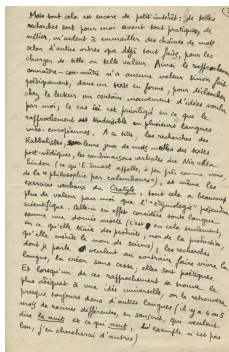 Mais tout cela est encore de petit intérêt : de telles
recherches sont pour moi avant tout pratiques, de
métier, m'aident à emmailler des chaînes de mots
selon d'autres ordres que déjà tout faits, pour les
charger de telle ou telle valeur. Ainsi, le rapprochement
connaître - con-naître n'a aucune valeur sinon fait
poétiquement, dans un texte en forme, pour déclencher
chez le lecteur un certain mouvement d'idées voulu
par moi ; le cas ici est privilégié en ce que le
rapprochement est traduisible en plusieurs langues
indo-européennes. A ce titre, les recherches des
Kabbalistes, leurs jeux de mots, celles des textes
post-védiques, les combinaisons verbales du Nirukta
hindou (ce qu'E. Senart appelle, à peu près comme vous
de la « philosophie par calembours »), et même les
exercices verbaux du Cratyle, tout cela a beaucoup
plus de valeur pour moi que l'"étymologie" prétendue
scientifique. Celle-ci en effet considère toute langue
comme une donnée morte (c'est en cela seulement,
en ce qu'elle traite des produits, non de la production,
qu'elle mérite le nom de science) ; les recherches
dont je parle veulent au contraire faire vivre la
langue, la créer sans cesse ; elles sont poétiques.
Et lorsqu'un de ces rapprochements se trouve le
plus adéquat à une idée universelle, on le retrouvera
presque toujours dans d'autres langues (il y a 4 ou 5
mots de racines différentes, en sanscrit, qui veulent
dire la nuit et ce qui nuit ; l'exemple n'est pas
bon, j'en chercherai d'autres)